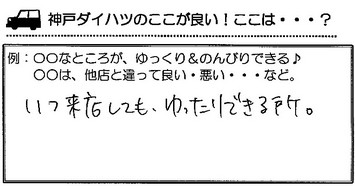 神戸ダイハツのここが良い！ここは・・・？
例：〇〇なところが、ゆっくり＆のんびりできる♪
〇〇は、他店と違って良い・悪い・・・など。
いつ来店しても、ゆったりできる所。